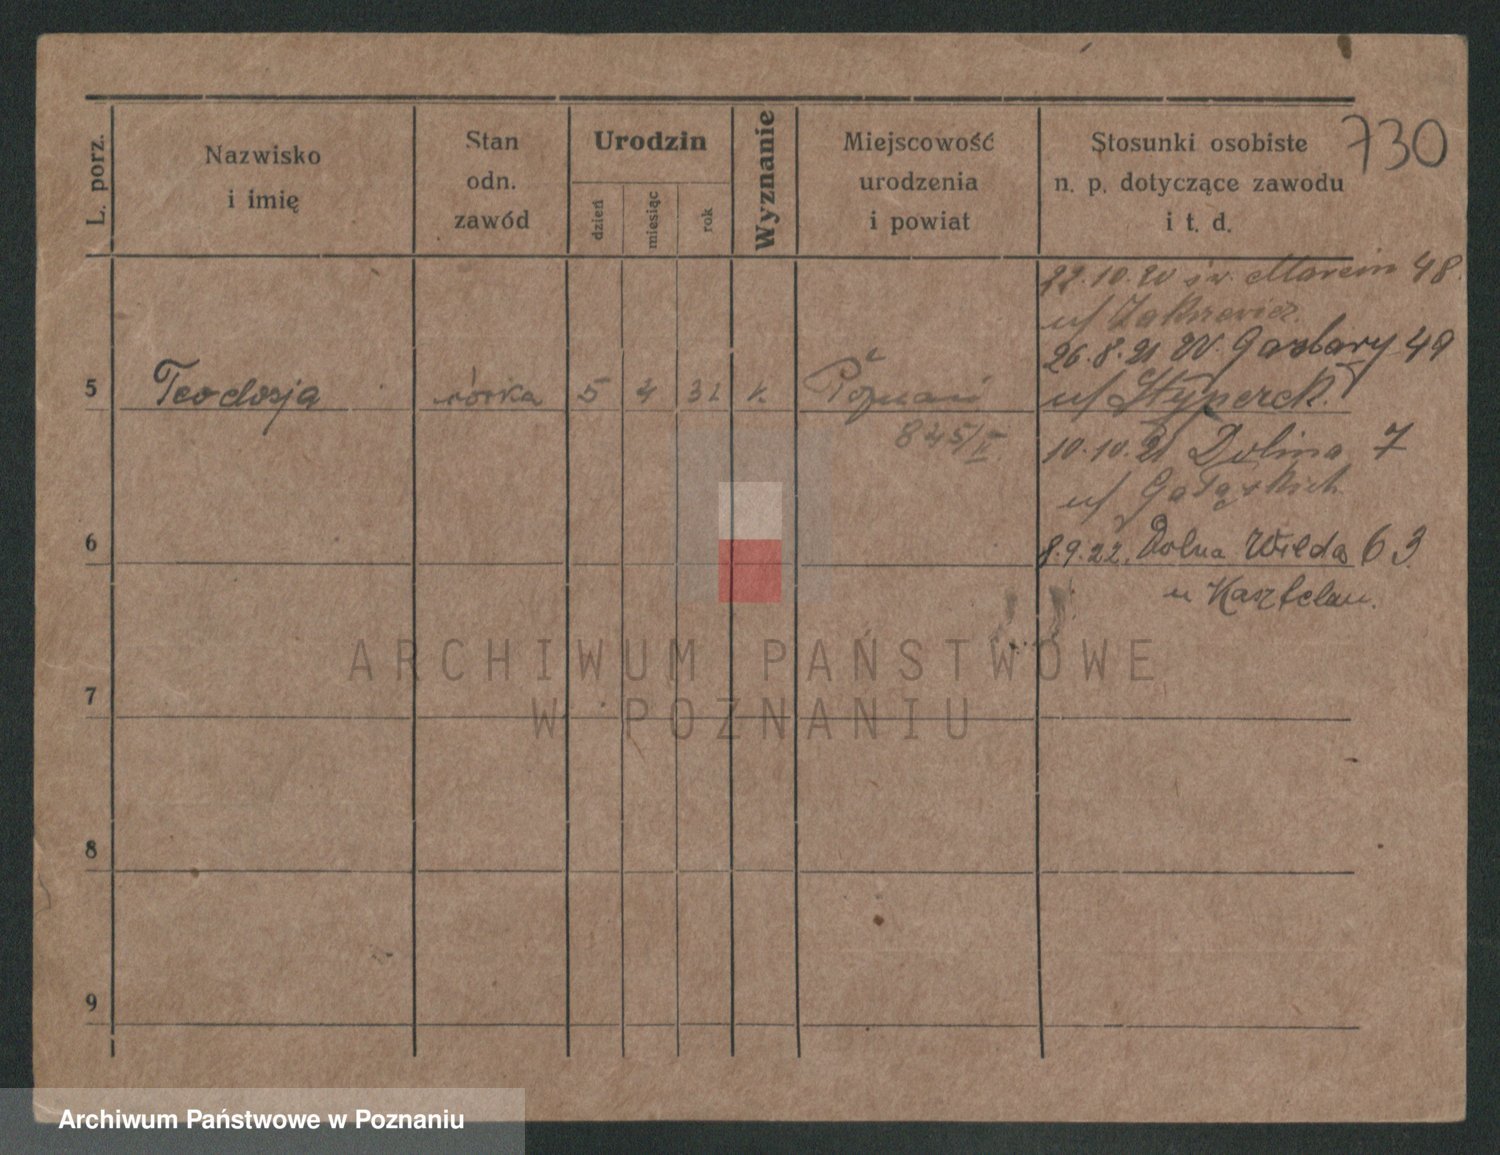 730
L. porz.
Nazwisko
i imię
Stan
odn.
zawód
Urodzin
dzień
miesiąc
rok
Wyznanie
Miejscowość
urodzenia
i powiat
Stosunki osobiste
n. p. dotyczące zawodu
i t. d.
22.10.20 św. Marcin 48.
u/
26.8.21 W. Garbary 49
u/
5 Teodozja córka 5 4 31 k. Poznań
845/II.
10.10.21 Dolina 7
u/
6
8.9.22. Dolna Wilda 63
u Kasztelan.
7
8
9
ARCHIWUM PAŃSTWOWE
W POZNANIU
Archiwum Państwowe w Poznaniu